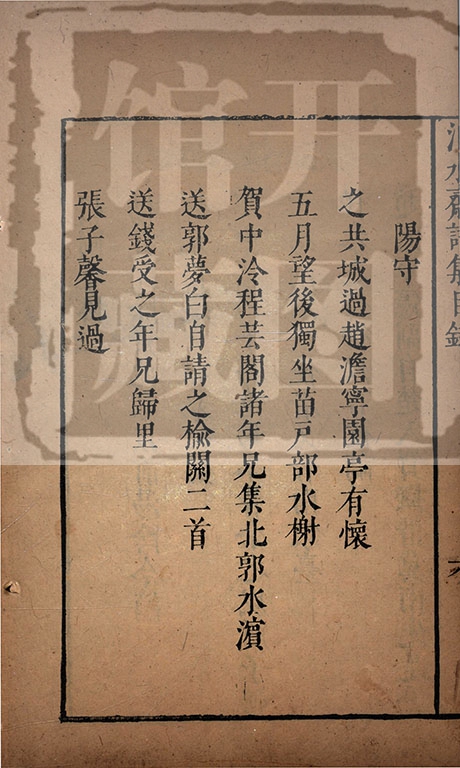 陽守
之共城過趙澹寧園亭有懷
五月望後獨坐苗戸部水榭
賀中泠程芸閣諸年兄集北郭水濵
送郭夢白自請之榆關二首
送錢受之年兄歸里
張子馨見過
開圖館藏